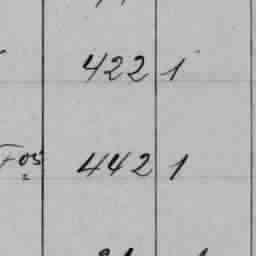 422 1
Fos 442 1